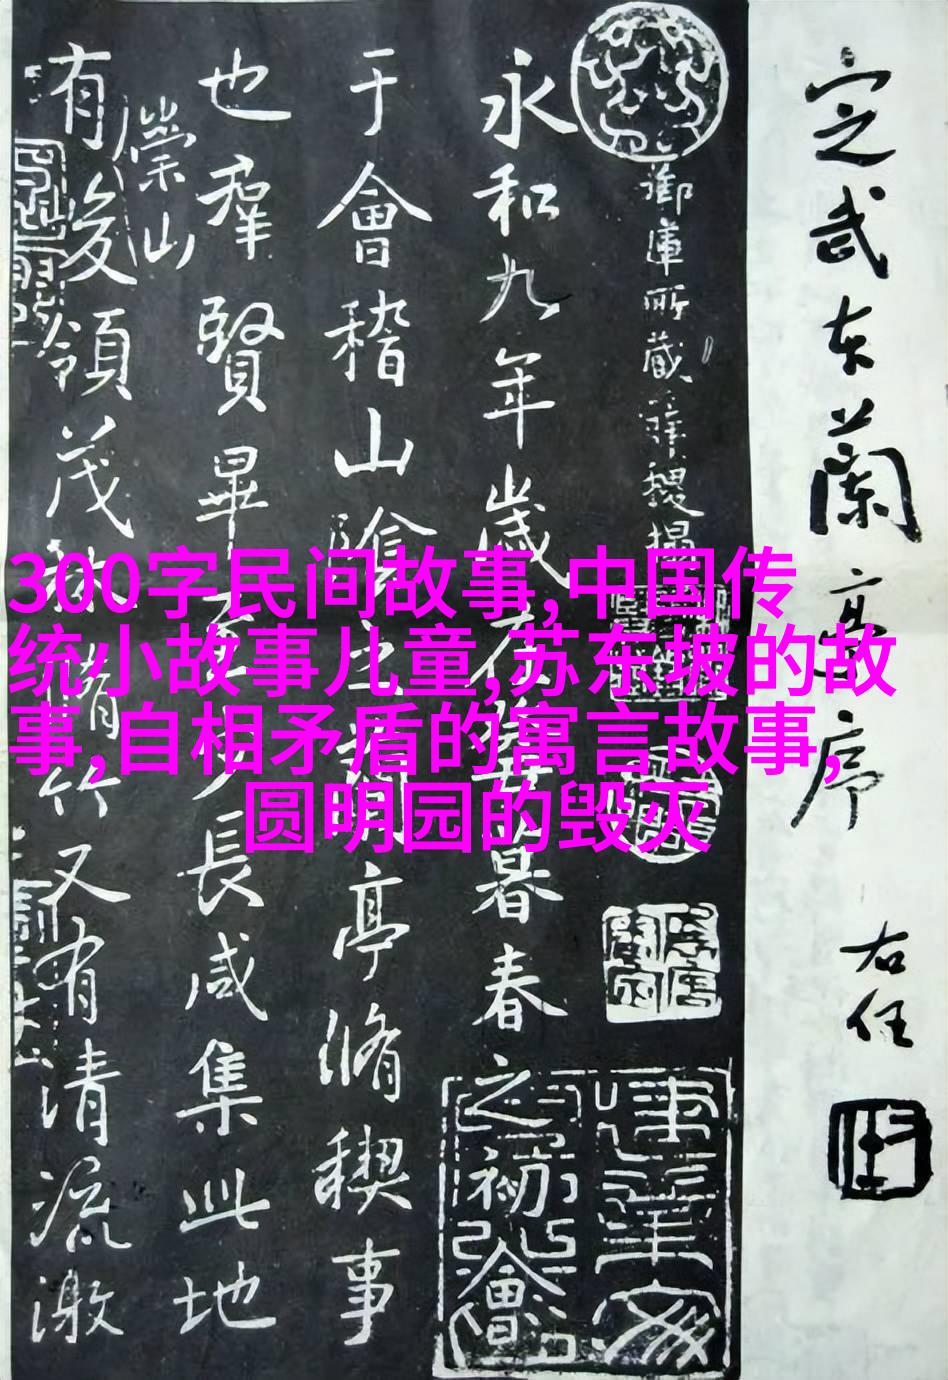 定武本蘭亭序
右任
御庫所藏薛稷搨
永和九年歲在癸丑暮春之初會
于會稽山陰之蘭亭脩禊事
也羣賢畢至少長咸集此地
有崇山峻領茂林脩竹又有清流激
300字民间故事,中国传
统小故事儿童,苏东坡的故
事,自相矛盾的寓言故事,
圆明园的毁灭